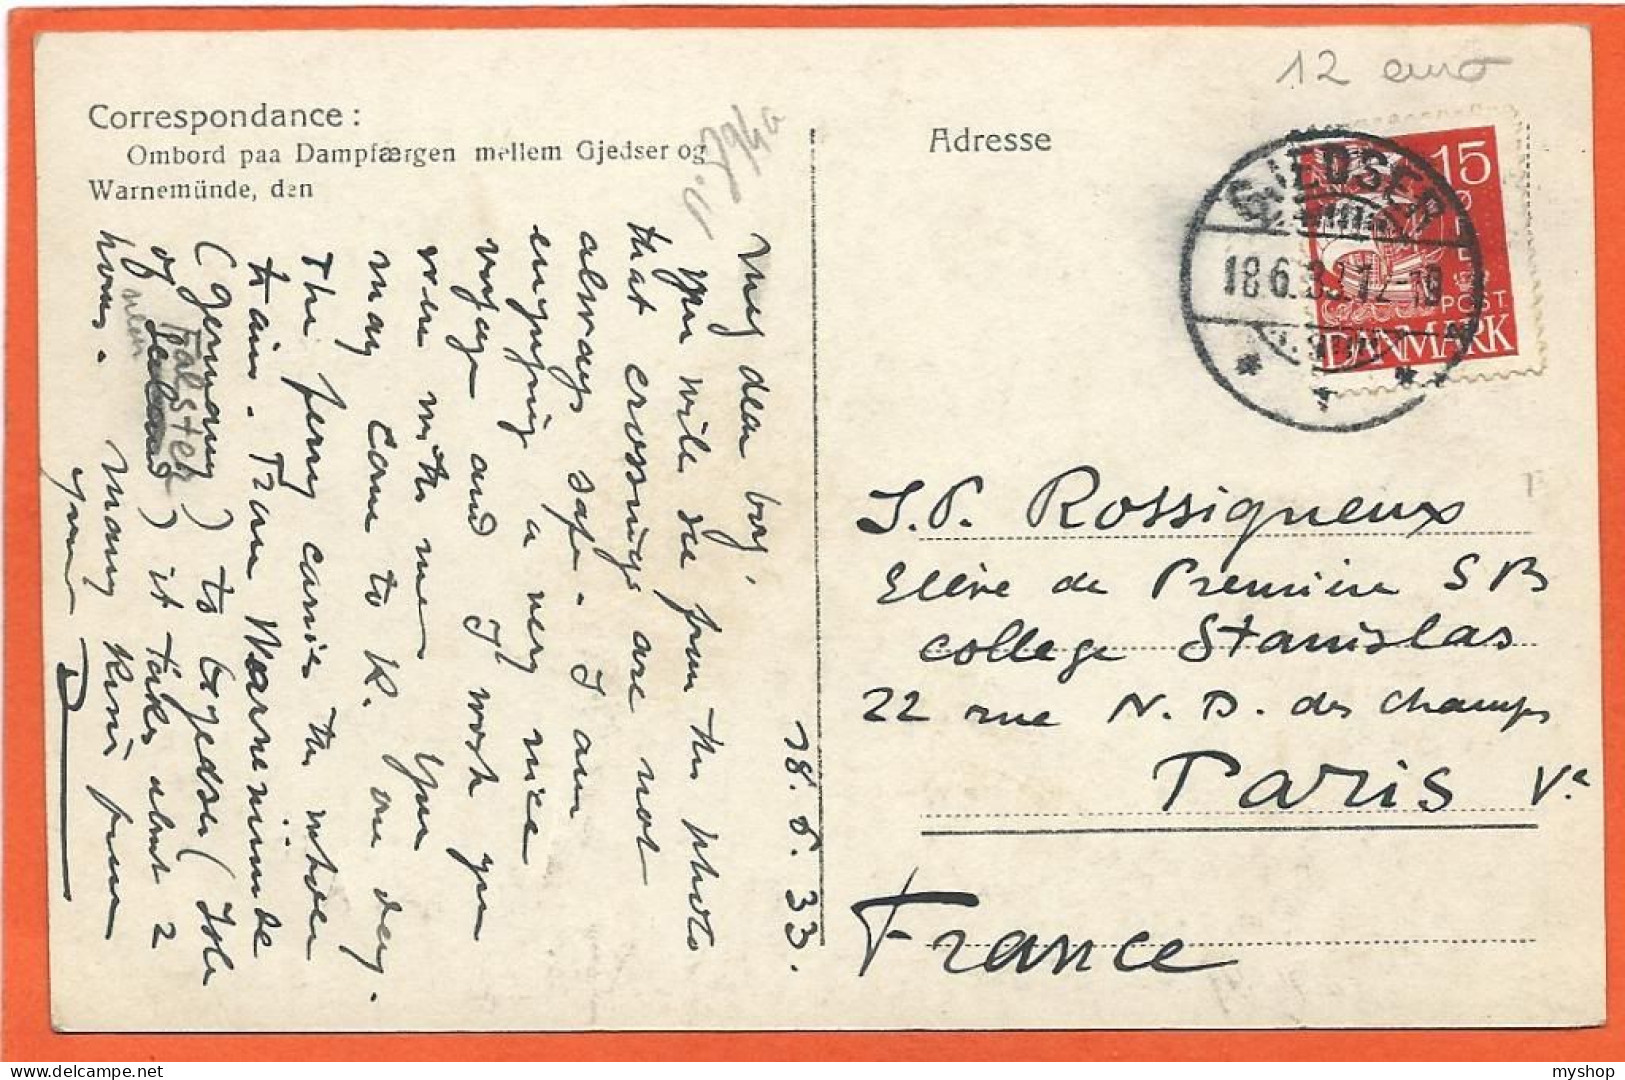 12 euro
Correspondance :
Ombord paa Dampfærgen mellem Gjedser og
Warnemünde, den
Adresse
My dear boy,
You will see from this photo
that crossings are not
always safe. I am
enjoying a very nice
voyage and I wish you
were with me. You
may come to K. one day.
The ferry carries the whole
train. From Warnemünde
(Germany) to Gjedser (Isle
of Falster) it takes about 2
hours. Many kind from
yours
18.6.33.
GJEDSER
18.6.33.17-19
15
ØRE
POST
DANMARK
J.P. Rossigneux
Elève de Première S B
College Stanislas
22 rue N. D. des Champs
Paris Ve
France
myshop